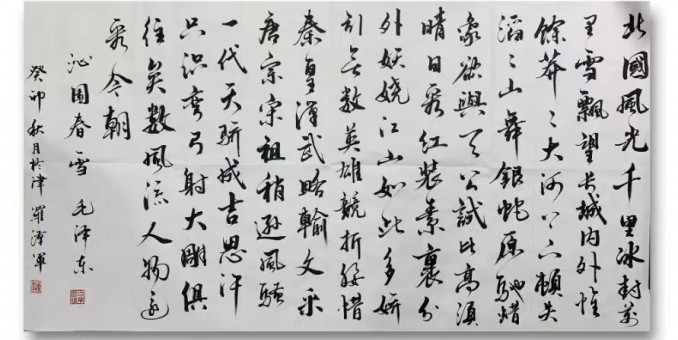 北國風光千里冰封萬
里雪飄望长城内外惟
餘莽〻大河上下頓失
滔〻山舞銀蛇原馳蜡
象欲與天公試比高須
晴日看红装素裹分
外妖娆江山如此多娇
引无数英雄競折腰惜
秦皇漢武略輸文采
唐宗宋祖稍遜風騷
一代天骄成吉思汗
只识弯弓射大雕俱
往矣数風流人物还
看今朝
沁園春雪 毛泽东
癸卯秋月於津 羅澤軍